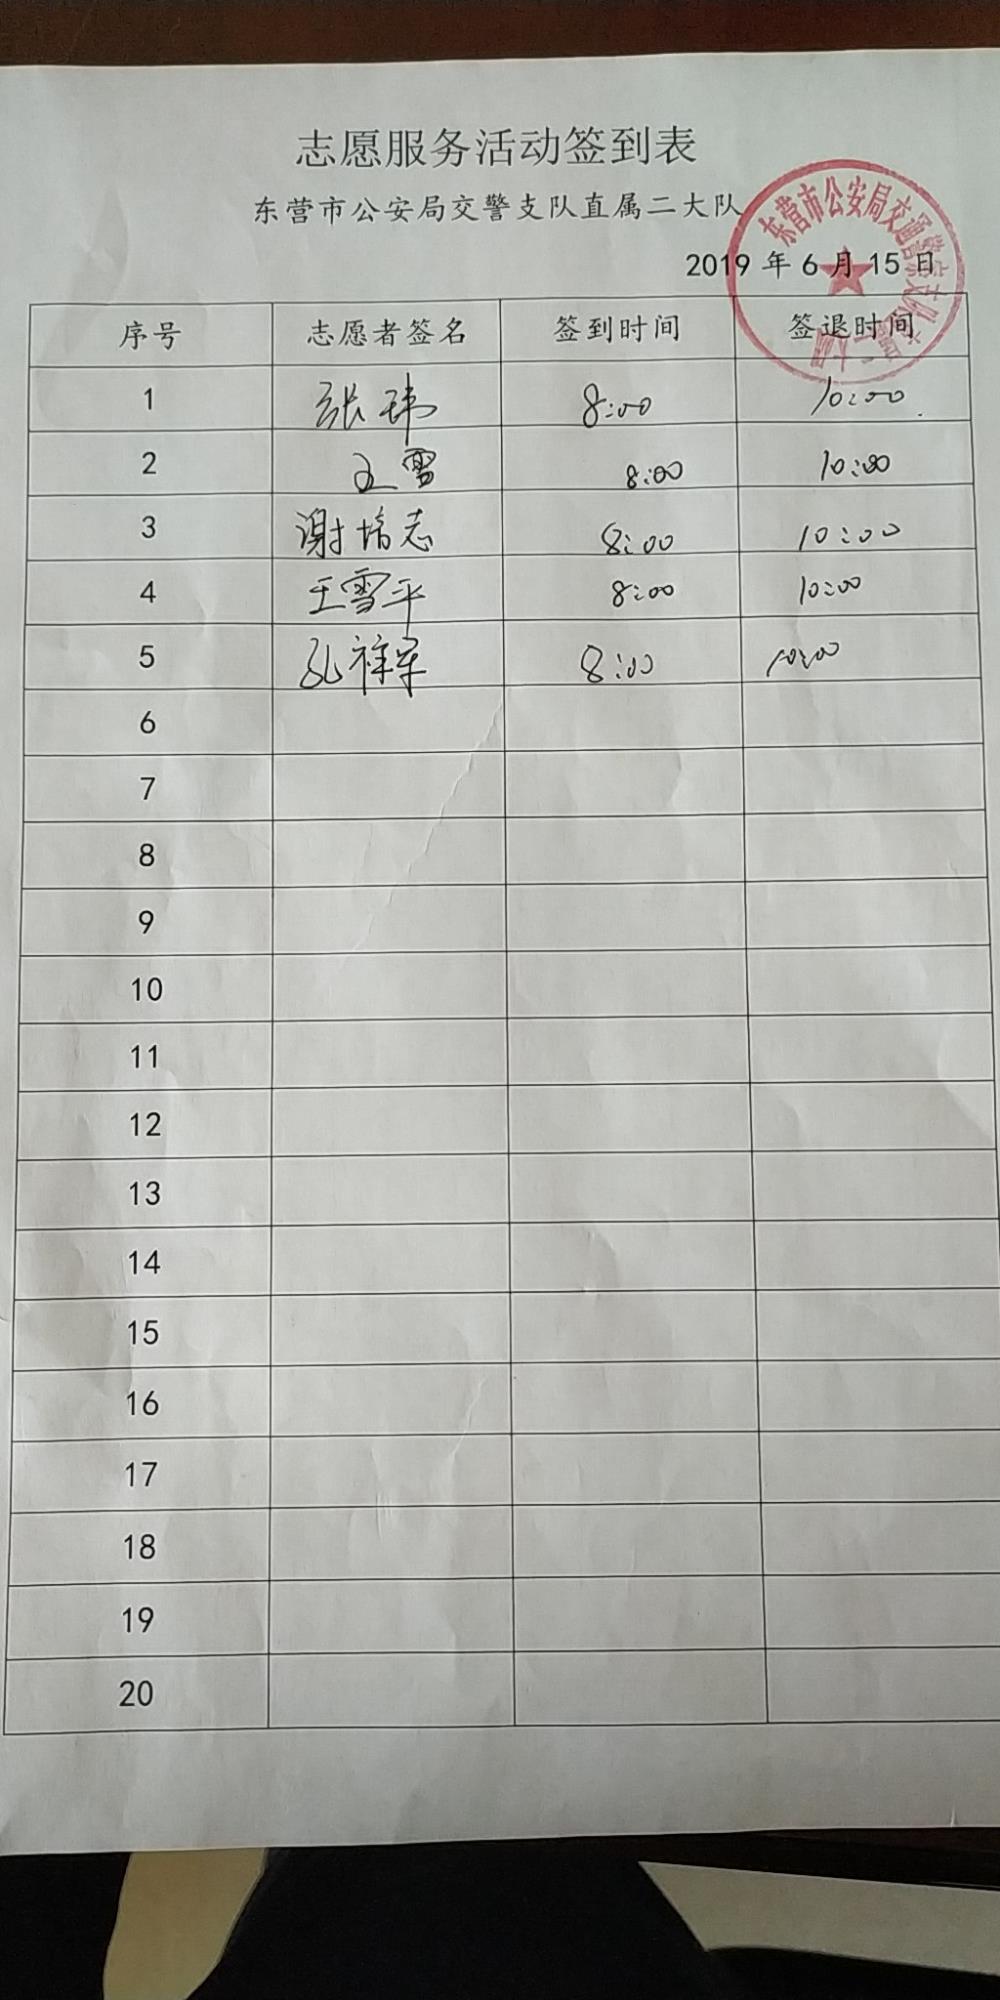 志愿服务活动签到表
东营市公安局交警支队直属二大队
东营市公安局交通警察支队直属二大队
2019 年 6 月 15 日
序号 志愿者签名 签到时间 签退时间
1 张玮 8:00 10:00
2 王雪 8:00 10:00
3 谢培志 8:00 10:00
4 王雪平 8:00 10:00
5 孔祥军 8:00 10:00
6
7
8
9
10
11
12
13
14
15
16
17
18
19
20